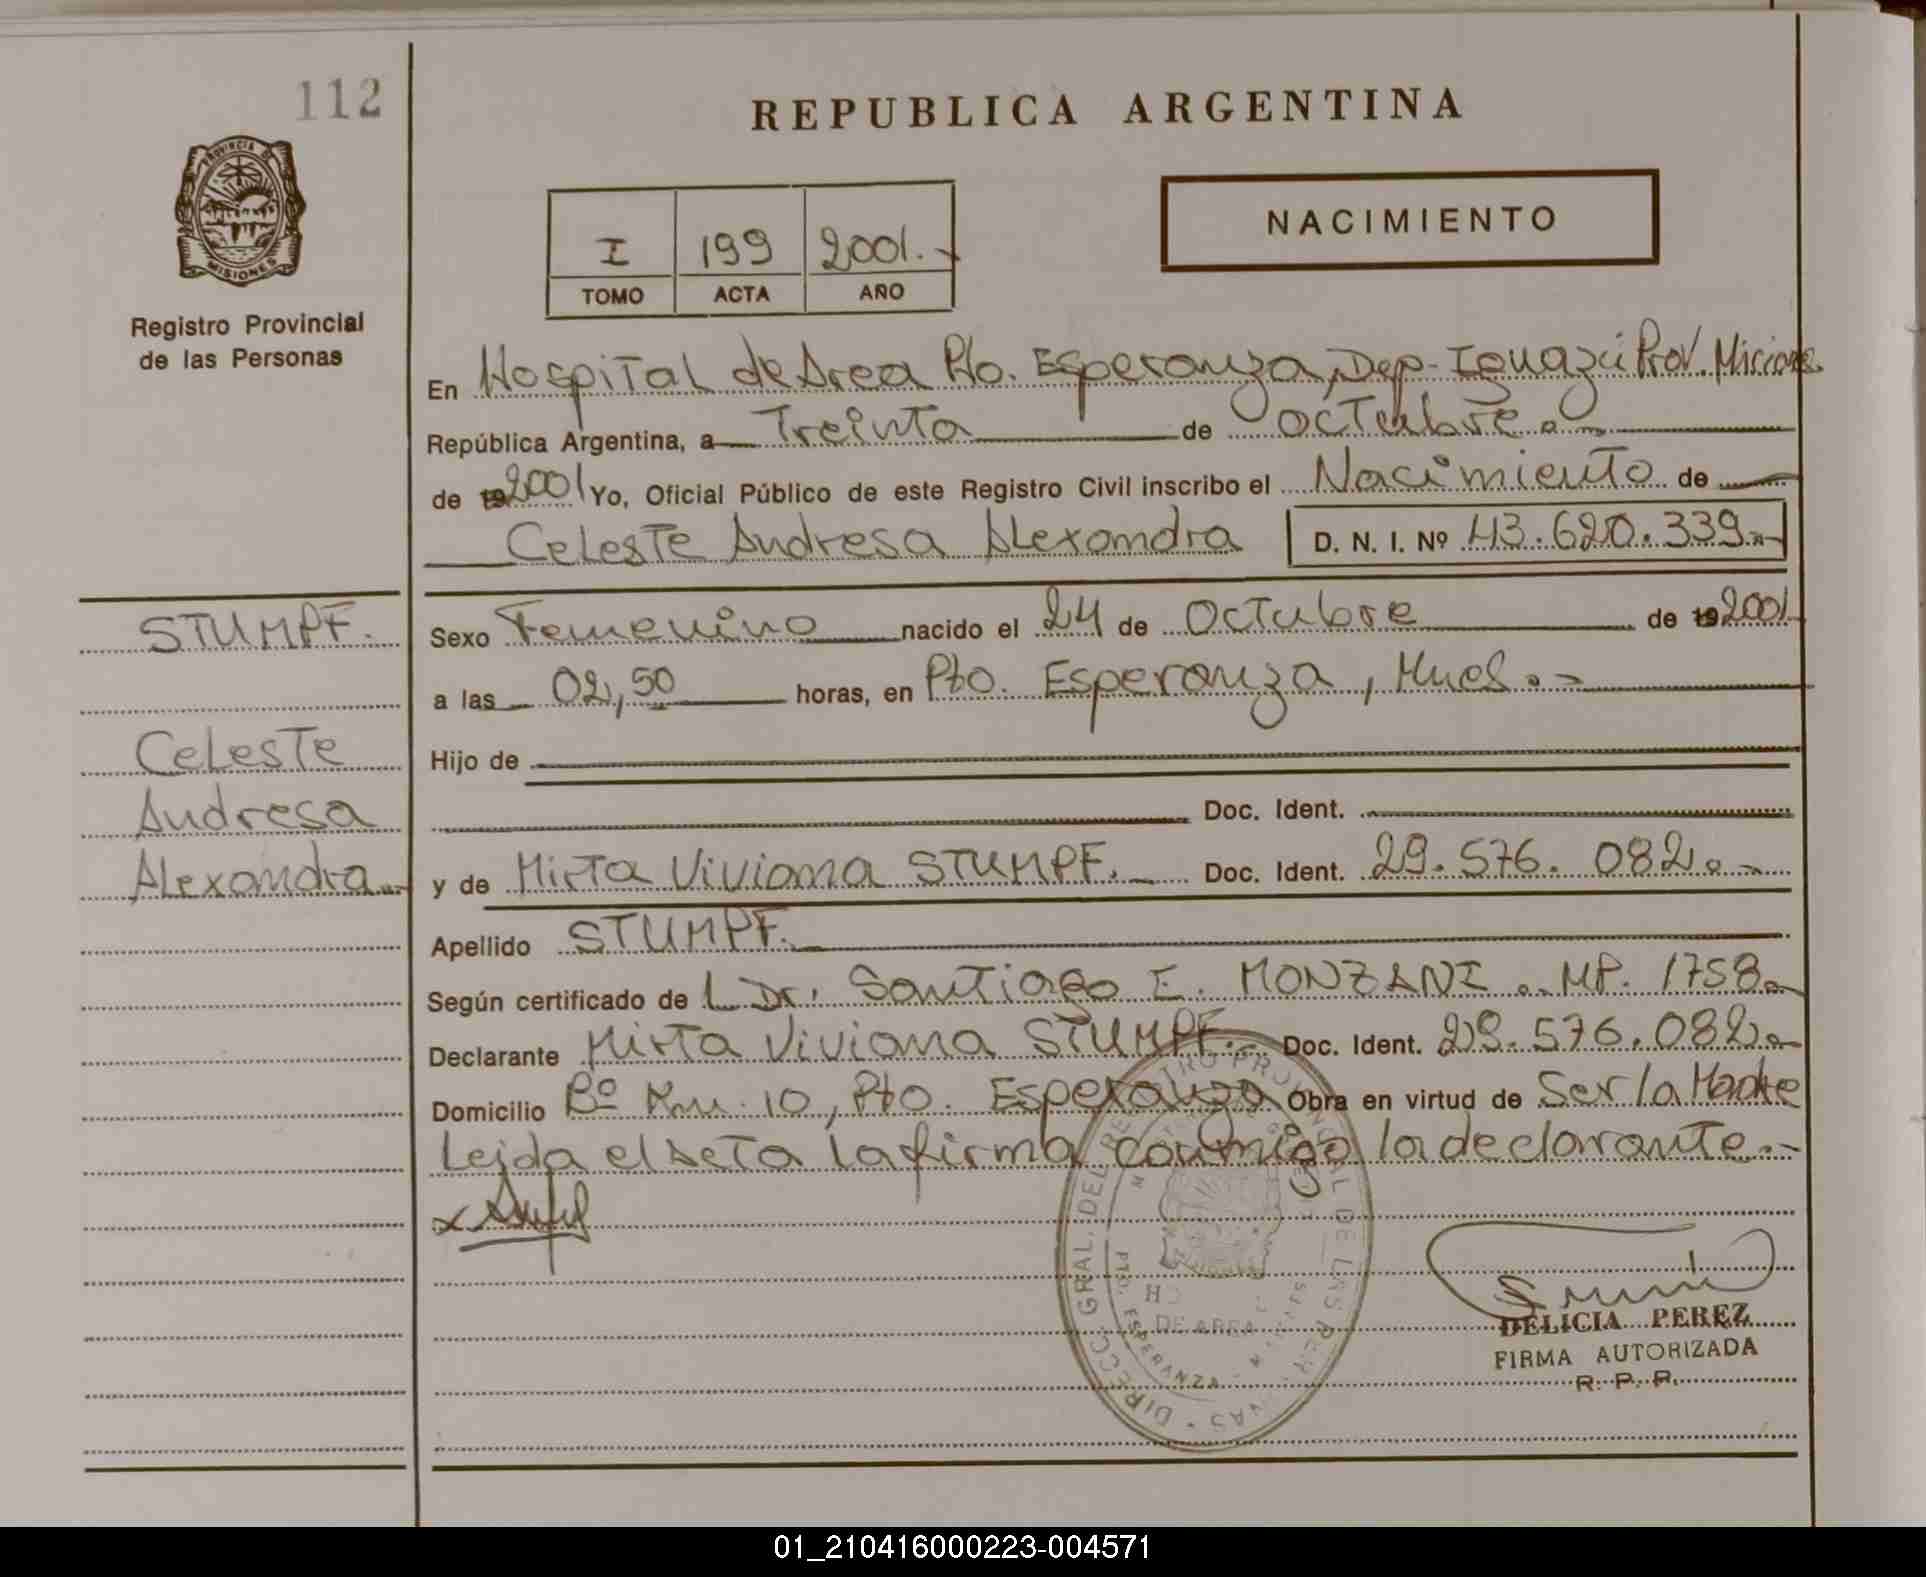 112
REPUBLICA ARGENTINA
PROVINCIA DE
MISIONES
Registro Provincial
de las Personas
I 199 2001.-
TOMO ACTA AÑO
NACIMIENTO
En Hospital de Area Pto. Esperanza, Dep- Iguazú Prov. Misiones
República Argentina, a Treinta de octubre.-
de 19 2001 Yo, Oficial Público de este Registro Civil inscribo el Nacimiento de
Celeste Andresa Alexandra D. N. I. Nº 43.620.339.-
STUMPF.
Celeste
Andresa
Alexandra.-
Sexo Femenino nacido el 24 de Octubre de 19 2001
a las 02,50 horas, en Pto. Esperanza, Mnes.-
Hijo de
Doc. Ident.
y de Mirta Viviana STUMPF.- Doc. Ident. 29.576.082.-
Apellido STUMPF.-
Según certificado de l Dr. Santiago E. MONZANI. MP. 1758.-
Declarante Mirta Viviana STUMPF.- Doc. Ident. 29.576.082.-
Domicilio Bº Km. 10, Pto. Esperanza Obra en virtud de Ser la Madre
Leida el Acta la firma conmigo la declarante.-
x
DIRECC. GRAL. DEL REGISTRO PROVINCIAL DE LAS PERSONAS
DE AREA
PTO. ESPERANZA - MISIONES
DELICIA PEREZ
FIRMA AUTORIZADA
R. P. P.
01_210416000223-004571